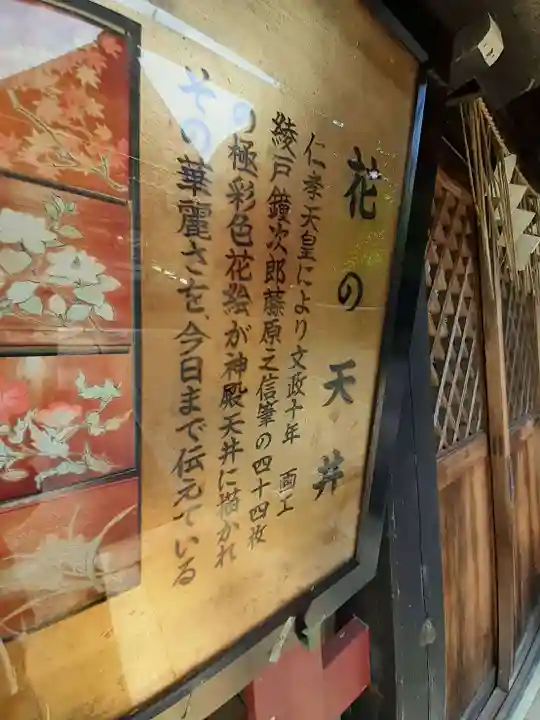 花の天井
仁孝天皇により文政十年　画工
綾戸鐘次郎藤原之信筆の四十四枚
の極彩色花絵が神殿天井に描かれ
その華麗さを、今日まで伝えている